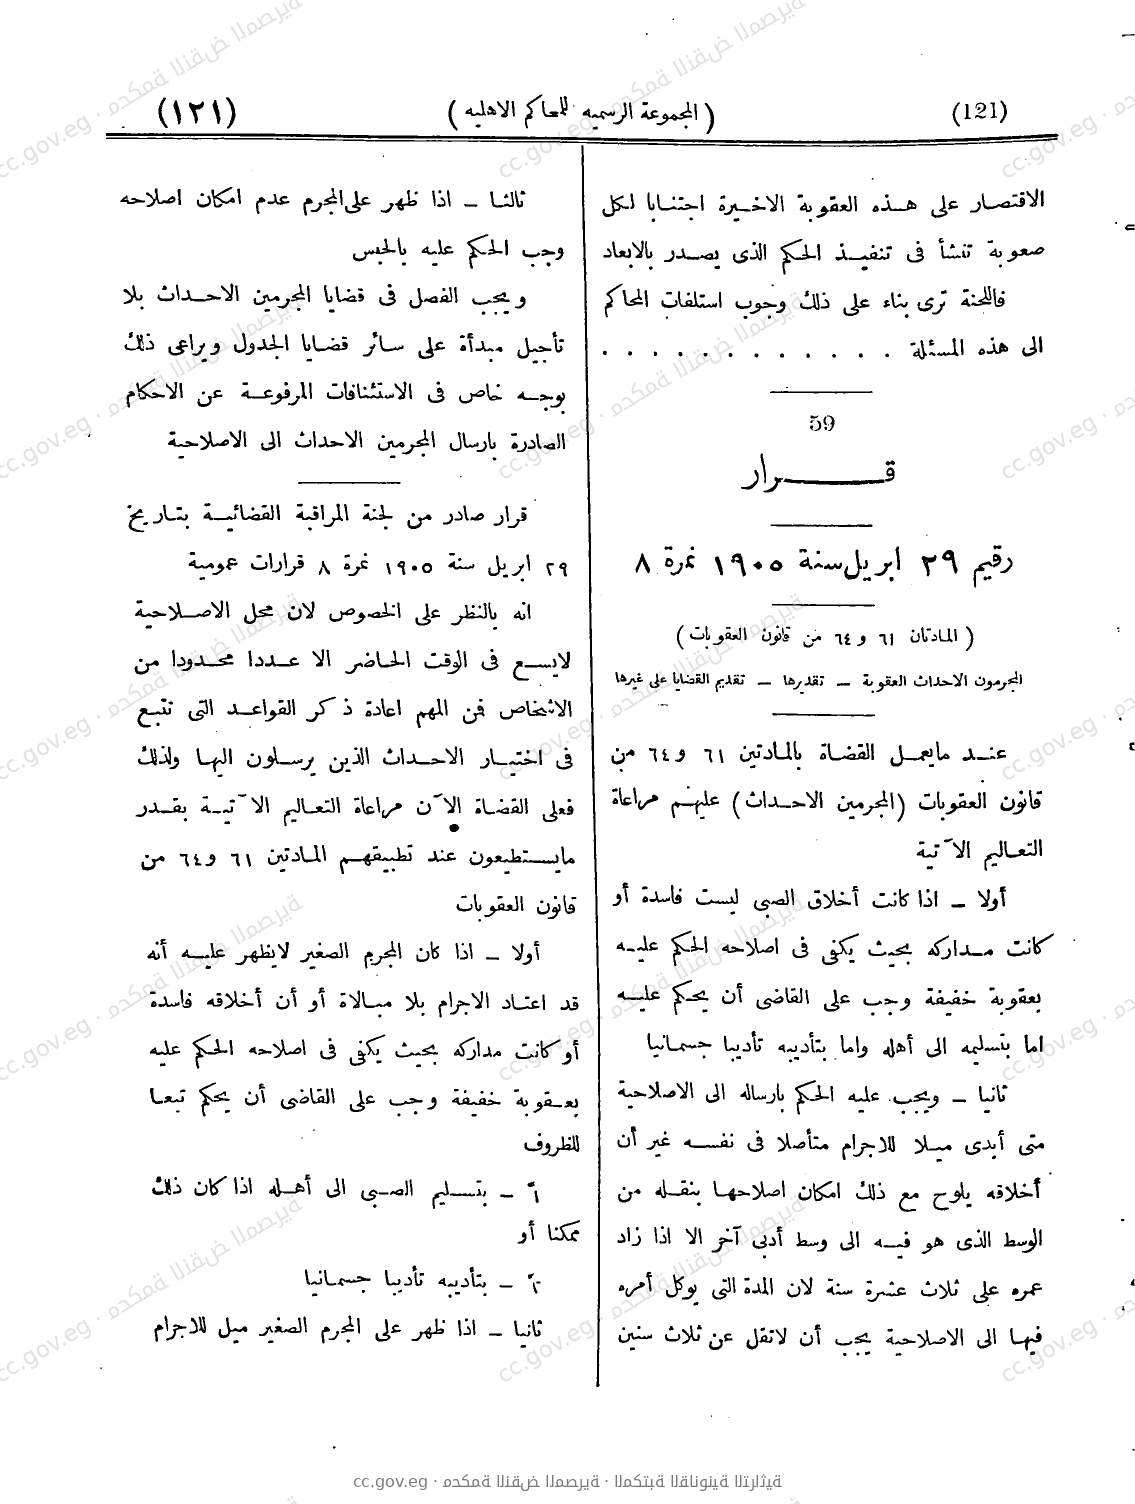 (121)
(المجموعة الرسميه للمحاكم الاهليه)
(١٢١)
الاقتصار على هذه العقوبة الاخيرة اجتنابا لكل
صعوبة تنشأ فى تنفيذ الحكم الذى يصدر بالابعاد
فاللجنة ترى بناء على ذلك وجوب استلفات المحاكم
الى هذه المسئلة . . . . . . . . . . . .
59
قرار
رقيم ٢٩ ابريل سنة ١٩٠٥ نمرة ٨
(المادتان ٦١ و٦٤ من قانون العقوبات)
المجرمون الاحداث العقوبة — تقديرها — تقديم القضايا على غيرها
عند مايعمل القضاة بالمادتين ٦١ و٦٤ من
قانون العقوبات (المجرمين الاحداث) عليهم مراعاة
التعاليم الآتية
أولا — اذا كانت أخلاق الصبى ليست فاسدة أو
كانت مداركه بحيث يكفى فى اصلاحه الحكم عليه
بعقوبة خفيفة وجب على القاضى أن يحكم عليه
اما بتسليمه الى أهله واما بتأديبه تأديبا جسمانيا
ثانيا — ويجب عليه الحكم بارساله الى الاصلاحية
متى أبدى ميلا للاجرام متأصلا فى نفسه غير أن
أخلاقه يلوح مع ذلك امكان اصلاحها بنقله من
الوسط الذى هو فيه الى وسط أدبى آخر الا اذا زاد
عمره على ثلاث عشرة سنة لان المدة التى يوكل أمره
فيها الى الاصلاحية يجب أن لاتقل عن ثلاث سنين
ثالثا — اذا ظهر على المجرم عدم امكان اصلاحه
وجب الحكم عليه بالحبس
ويجب الفصل فى قضايا المجرمين الاحداث بلا
تأجيل مبدأة على سائر قضايا الجدول ويراعى ذلك
بوجه خاص فى الاستئنافات المرفوعة عن الاحكام
الصادرة بارسال المجرمين الاحداث الى الاصلاحية
قرار صادر من لجنة المراقبة القضائية بتاريخ
٢٩ ابريل سنة ١٩٠٥ نمرة ٨ قرارات عمومية
انه بالنظر على الخصوص لان محل الاصلاحية
لايسع فى الوقت الحاضر الا عددا محدودا من
الاشخاص فمن المهم اعادة ذكر القواعد التى تتبع
فى اختيار الاحداث الذين يرسلون اليها ولذلك
فعلى القضاة الآن مراعاة التعاليم الآتية بقدر
مايستطيعون عند تطبيقهم المادتين ٦١ و٦٤ من
قانون العقوبات
أولا — اذا كان المجرم الصغير لايظهر عليه أنه
قد اعتاد الاجرام بلا مبالاة أو أن أخلاقه فاسدة
أو كانت مداركه بحيث يكفى فى اصلاحه الحكم عليه
بعقوبة خفيفة وجب على القاضى أن يحكم تبعا
للظروف
١ — بتسليم الصبى الى أهله اذا كان ذلك
ممكنا أو
٢ — بتأديبه تأديبا جسمانيا
ثانيا — اذا ظهر على المجرم الصغير ميل للاجرام
cc.gov.eg · محكمة النقض المصرية · المكتبة القانونية التراثية